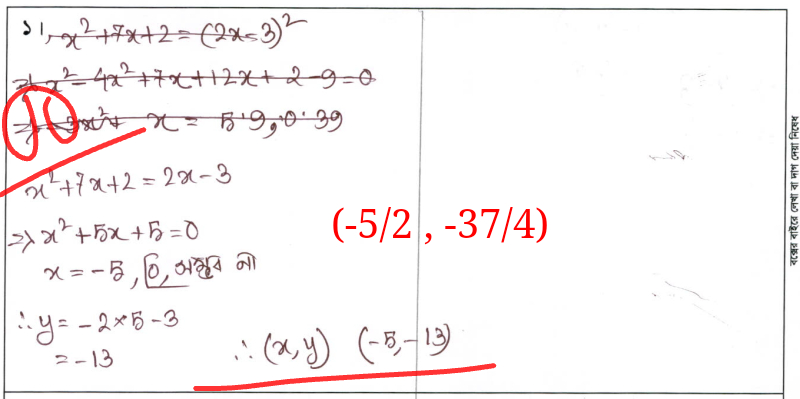 ১১, x²+7x+2=(2x-3)²
⇒ x²-4x²+7x+12x+2-9=0
⇒ -3x²+ x = 5.9, 0.39
10
x²+7x+2=2x-3
⇒ x²+5x+5=0
x = -5, 0, সম্ভব না
∴ y = -2×5-3
= -13
(-5/2 , -37/4)
∴ (x, y) (-5, -13)
বক্সের বাইরে লেখা বা দাগ দেয়া নিষেধ